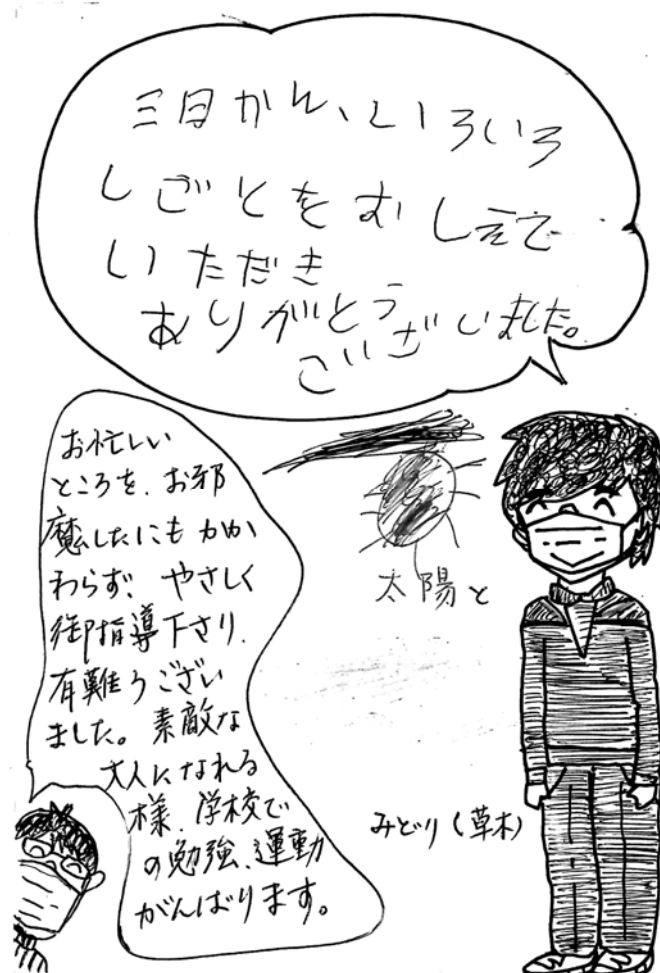 三日かん、いろいろ
しごとをおしえて
いただき
ありがとう
ございました。
お忙しい
ところを、お邪
魔したにもかか
わらず、やさしく
御指導下さり、
有難うござい
ました。素敵な
大人になれる
様、学校で
の勉強、運動
がんばります。
太陽と
みどり(草木)